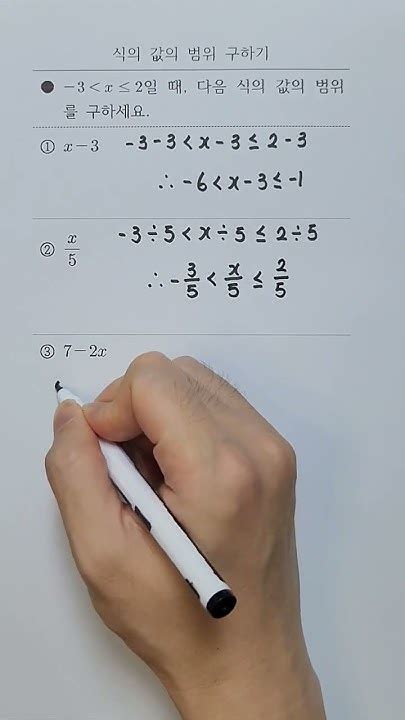 식의 값의 범위 구하기
● -3 < x ≤ 2일 때, 다음 식의 값의 범위
를 구하세요.
① x-3 -3-3 < x-3 ≤ 2-3
∴ -6 < x-3 ≤ -1
② x/5 -3÷5 < x÷5 ≤ 2÷5
∴ -3/5 < x/5 ≤ 2/5
③ 7-2x